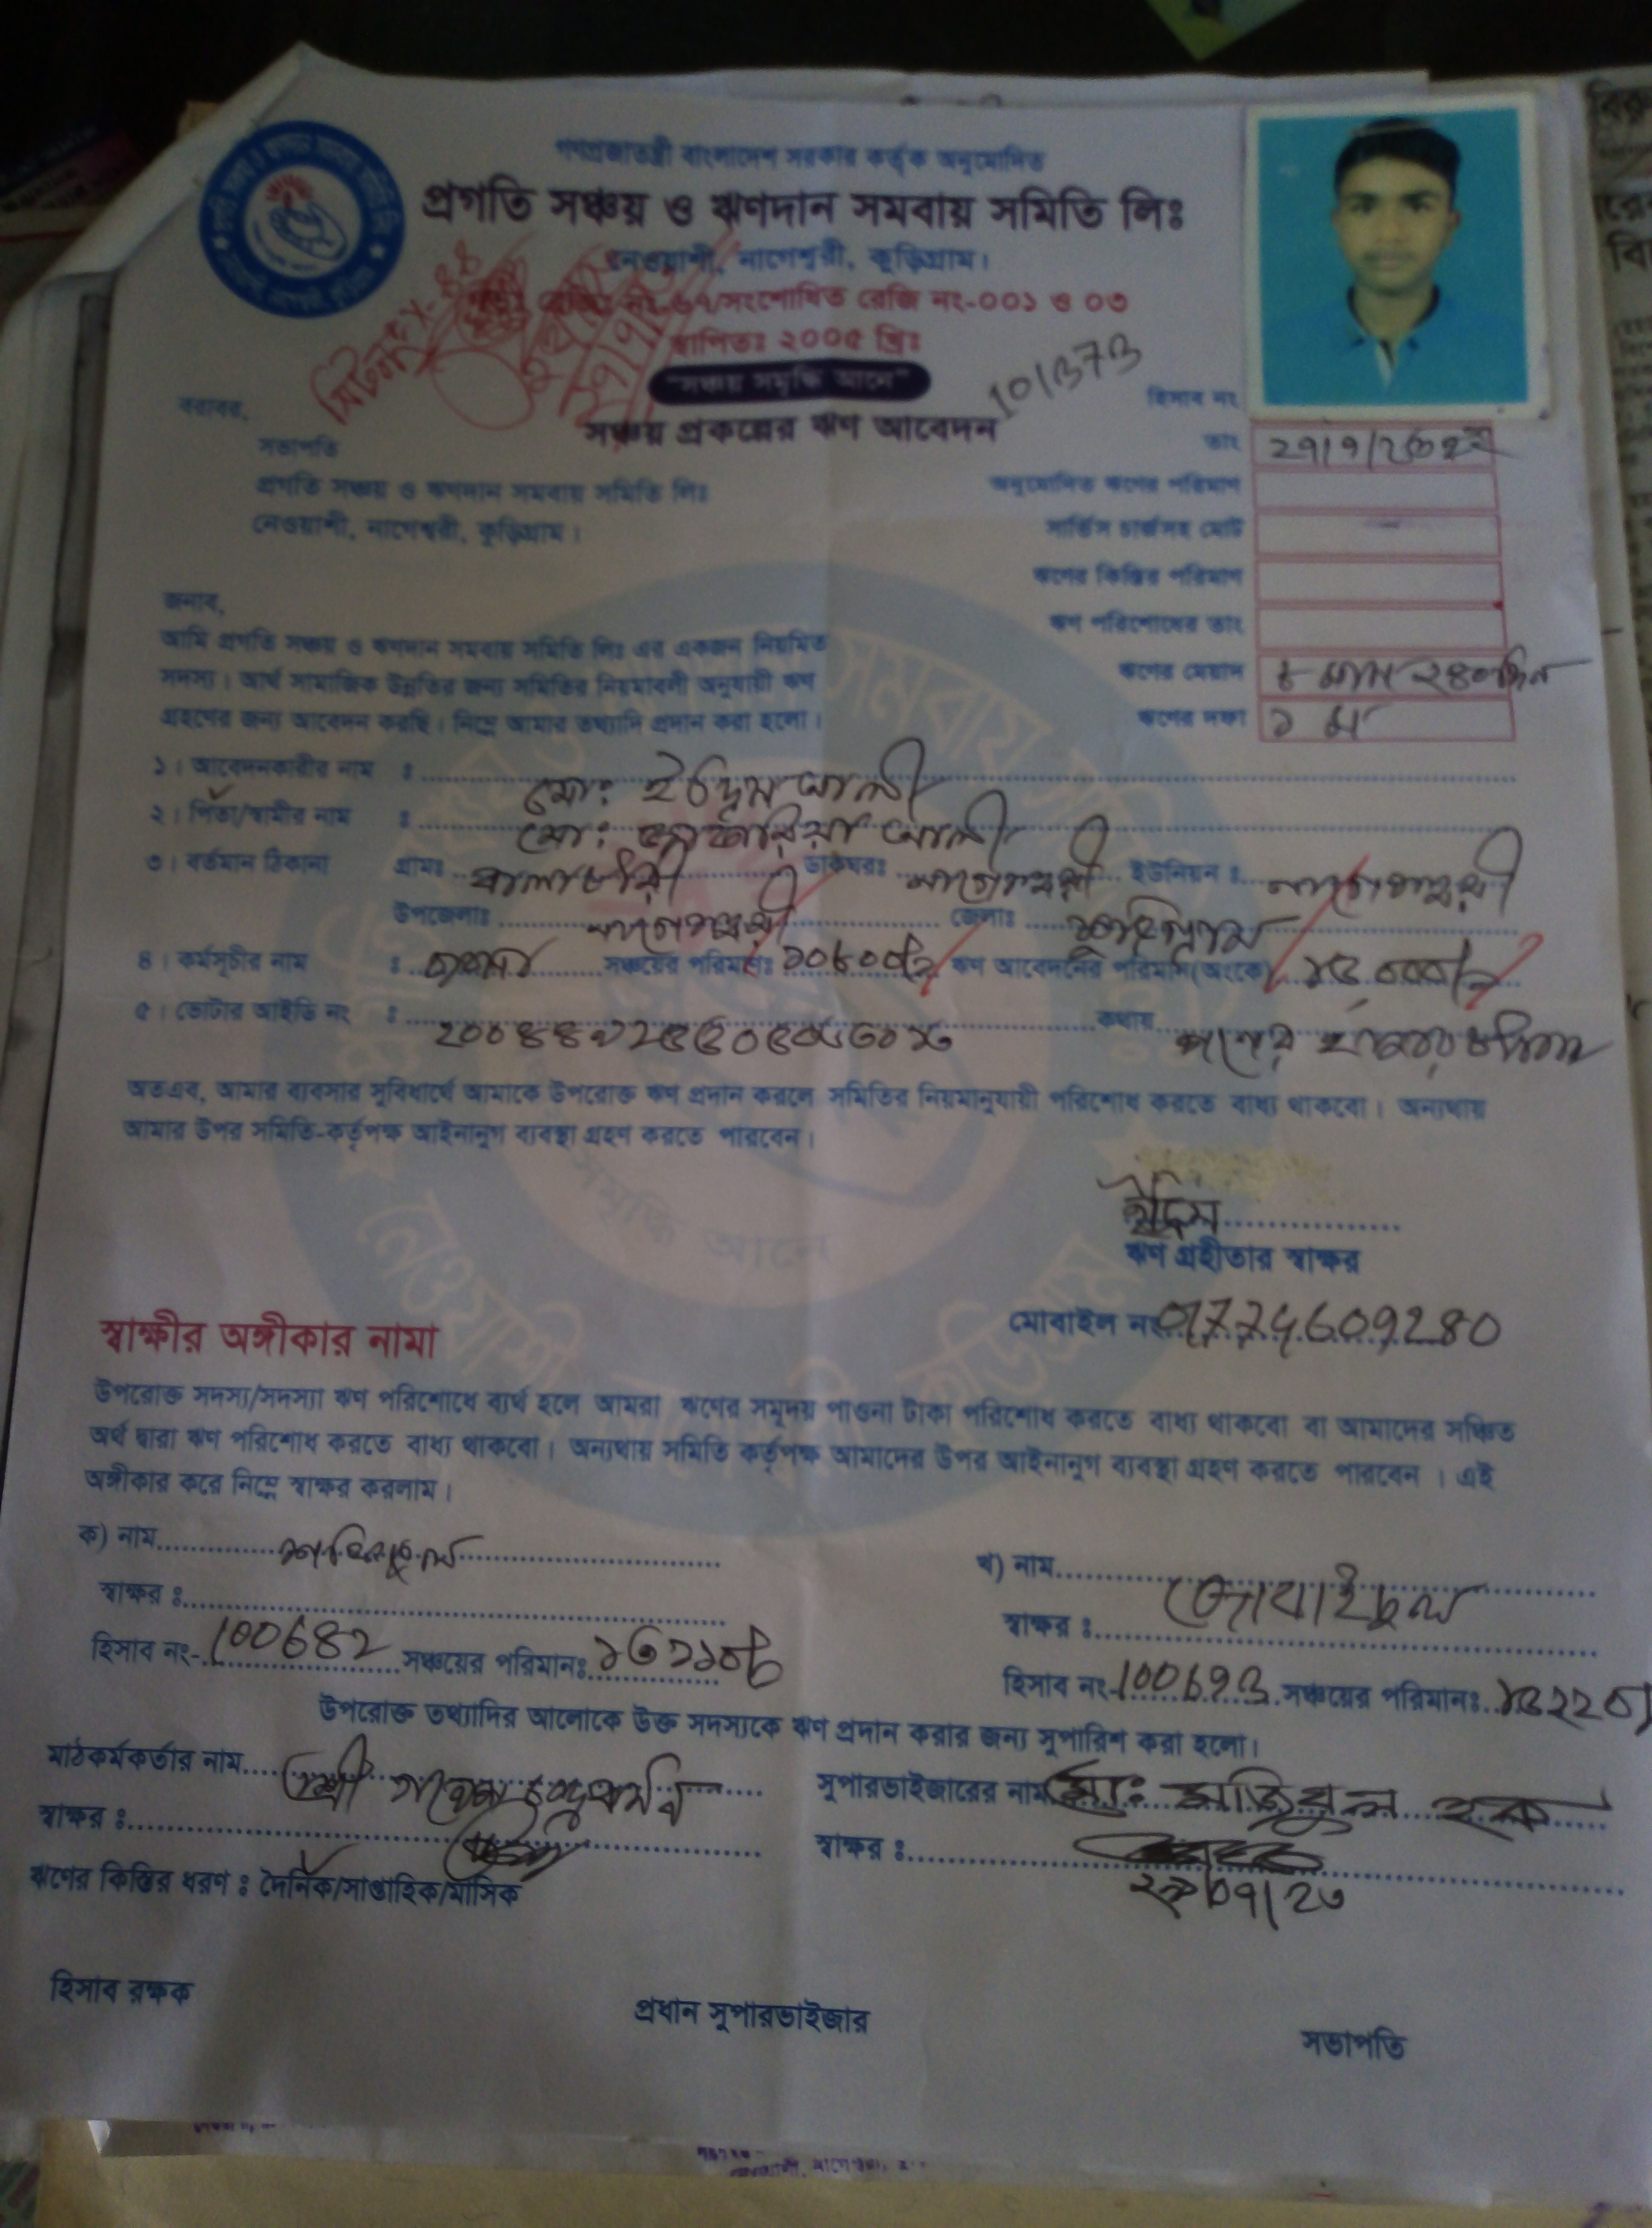 গণপ্রজাতন্ত্রী বাংলাদেশ সরকার কর্তৃক অনুমোদিত
প্রগতি সঞ্চয় ও ঋণদান সমবায় সমিতি লিঃ
নেওয়াশী, নাগেশ্বরী, কুড়িগ্রাম।
রেজিঃ নং-৬৭/সংশোধিত রেজি নং-০০১ ও ০৩
স্থাপিতঃ ২০০৫ খ্রিঃ
"সঞ্চয় সমৃদ্ধি আনে"
101373
সঞ্চয় প্রকল্পের ঋণ আবেদন
হিসাব নং
বরাবর,
সভাপতি
প্রগতি সঞ্চয় ও ঋণদান সমবায় সমিতি লিঃ
নেওয়াশী, নাগেশ্বরী, কুড়িগ্রাম।
তাং
অনুমোদিত ঋণের পরিমাণ
সার্ভিস চার্জসহ মোট
ঋণের কিস্তির পরিমাণ
ঋণ পরিশোধের তাং
ঋণের মেয়াদ ৮ মাস ২৪০দিন
ঋণের দফা ১ম
জনাব,
আমি প্রগতি সঞ্চয় ও ঋণদান সমবায় সমিতি লিঃ এর একজন নিয়মিত
সদস্য। আর্থ সামাজিক উন্নতির জন্য সমিতির নিয়মাবলী অনুযায়ী ঋণ
গ্রহণের জন্য আবেদন করছি। নিম্নে আমার তথ্যাদি প্রদান করা হলো।
১। আবেদনকারীর নাম : মো: ইদ্রিস আলী
২। পিতা/স্বামীর নাম : মো: জাকারিয়া আলী
৩। বর্তমান ঠিকানা গ্রামঃ ডাকঘরঃ নাগেশ্বরী ইউনিয়ন : নাগেশ্বরী
উপজেলাঃ নাগেশ্বরী জেলাঃ কুড়িগ্রাম
৪। কর্মসূচীর নাম : সঞ্চয়ের পরিমাণঃ ১০৮০০/= ঋণ আবেদনের পরিমাণ(অংকে) ১৫,০০০/=
৫। ভোটার আইডি নং : কথায় পনের হাজার টাকা
অতএব, আমার ব্যবসার সুবিধার্থে আমাকে উপরোক্ত ঋণ প্রদান করলে সমিতির নিয়মানুযায়ী পরিশোধ করতে বাধ্য থাকবো। অন্যথায়
আমার উপর সমিতি-কর্তৃপক্ষ আইনানুগ ব্যবস্থা গ্রহণ করতে পারবেন।
ইদ্রিস
ঋণ গ্রহীতার স্বাক্ষর
মোবাইল নং
স্বাক্ষীর অঙ্গীকার নামা
উপরোক্ত সদস্য/সদস্যা ঋণ পরিশোধে ব্যর্থ হলে আমরা ঋণের সমূদয় পাওনা টাকা পরিশোধ করতে বাধ্য থাকবো বা আমাদের সঞ্চিত
অর্থ দ্বারা ঋণ পরিশোধ করতে বাধ্য থাকবো। অন্যথায় সমিতি কর্তৃপক্ষ আমাদের উপর আইনানুগ ব্যবস্থা গ্রহণ করতে পারবেন। এই
অঙ্গীকার করে নিম্নে স্বাক্ষর করলাম।
ক) নাম
খ) নাম জোবাইদুল
স্বাক্ষর :
স্বাক্ষর :
হিসাব নং- 100682 সঞ্চয়ের পরিমানঃ
হিসাব নং- সঞ্চয়ের পরিমানঃ
উপরোক্ত তথ্যাদির আলোকে উক্ত সদস্যকে ঋণ প্রদান করার জন্য সুপারিশ করা হলো।
মাঠকর্মকর্তার নাম শ্রী
সুপারভাইজারের নাম মো: হক
স্বাক্ষর :
স্বাক্ষর :
ঋণের কিস্তির ধরণ : দৈনিক/সাপ্তাহিক/মাসিক
হিসাব রক্ষক
প্রধান সুপারভাইজার
সভাপতি